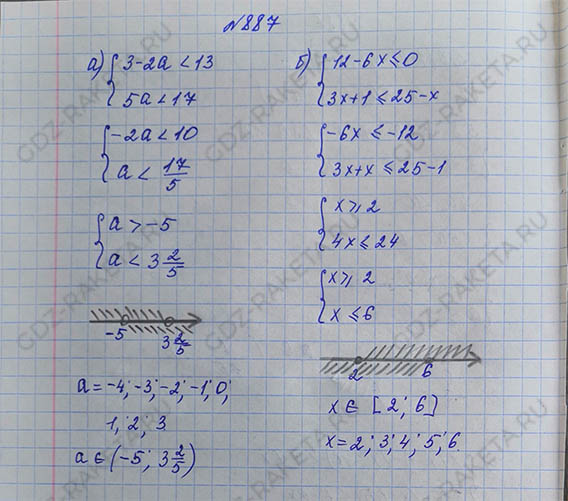 №887
а) { 3-2a < 13
5a < 17
{ -2a < 10
a < 17/5
{ a > -5
a < 3 2/5
-5 3 2/5
a = -4; -3; -2; -1; 0;
1; 2; 3
a ∈ (-5; 3 2/5)
б) { 12-6x ≤ 0
3x+1 ≤ 25-x
{ -6x ≤ -12
3x+x ≤ 25-1
{ x ≥ 2
4x ≤ 24
{ x ≥ 2
x ≤ 6
2 6
x ∈ [2; 6]
x = 2; 3; 4; 5; 6.
GDZ-RAKETA.RU